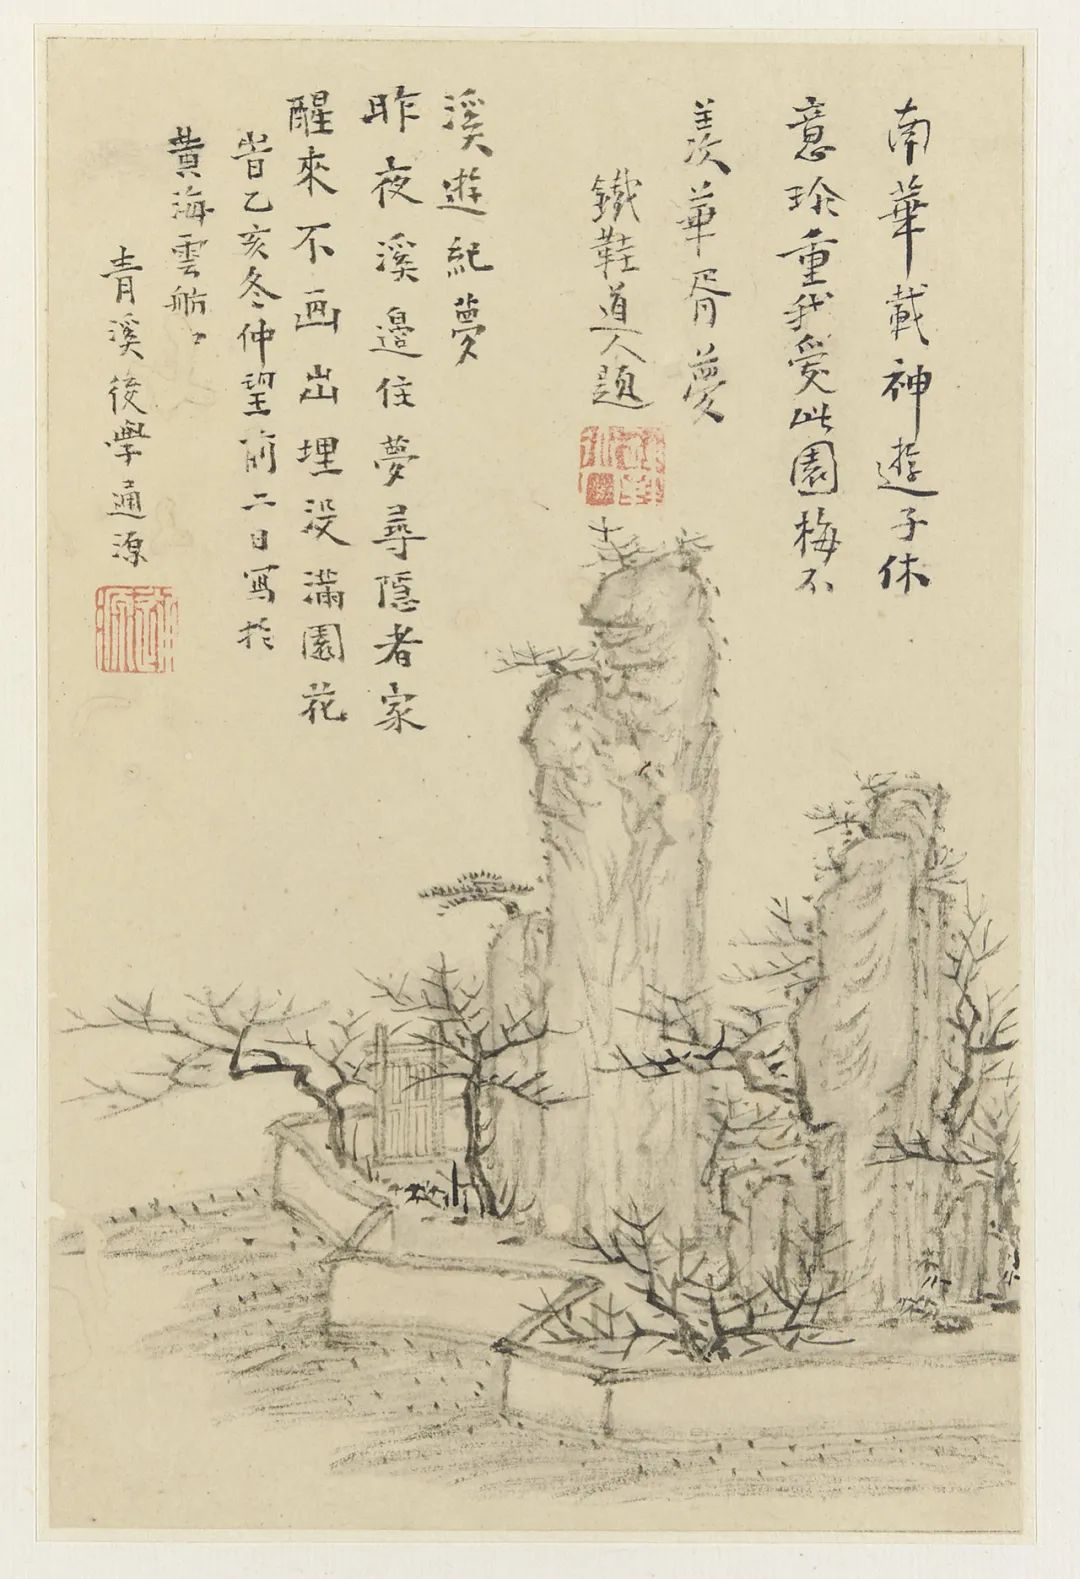 南華載神遊子休
意珍重我爱此園梅不
羡華胥夢
鐵鞋道人題
溪遊紀夢
昨夜溪邊住夢尋隱者家
醒來不画出埋没滿園花
岩乙亥冬仲望前二日寫於
黄海雲舫
青溪後學通源